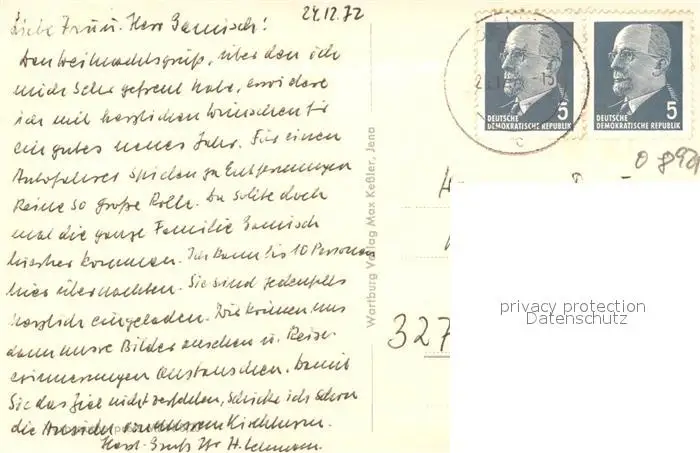 24.12.72
Liebe Frau u. Herr Gamisch!
Den Weihnachtsgruß, über den ich
mich sehr gefreut habe, erwidere
ich mit herzlichen Wünschen für
ein gutes neues Jahr. Für einen
Autofahrer spielen ja Entfernungen
keine so große Rolle. Da sollte doch
mal die ganze Familie Gamisch
hierher kommen. Ich kann bis 10 Personen
hier übernachten. Sie sind jedenfalls
herzlich eingeladen. Wir können uns
dann unsre Bilder ansehen u. Reise-
erinnerungen austauschen. Damit
Sie das Ziel nicht verfehlen, schicke ich schon
die Ansicht unseres Kirchturm.
Herzl. Gruß Ihr H. Lehmann
Wartburg Verlag Max Keßler, Jena
5
DEUTSCHE
DEMOKRATISCHE REPUBLIK
5
DEUTSCHE
DEMOKRATISCHE REPUBLIK
327
privacy protection
Datenschutz